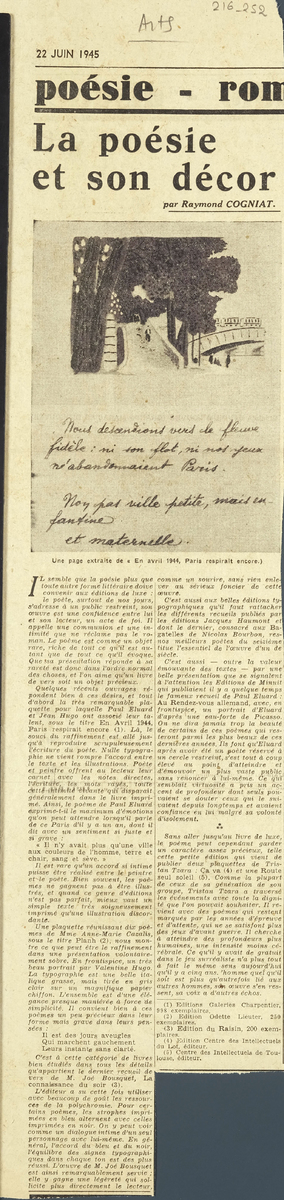 216_252
Arts.
22 JUIN 1945
poésie - rom
La poésie
et son décor
par Raymond COGNIAT.
Nous descendions vers le fleuve
fidèle : ni son flot, ni nos yeux
n'abandonnaient Paris.
Non pas ville petite, mais en-
fantine
et maternelle.
Une page extraite de « En avril 1944, Paris respirait encore.)
IL semble que la poésie plus que
toute autre forme littéraire doive
convenir aux éditions de luxe :
le poète, surtout de nos jours,
s'adresse à un public restreint, son
œuvre est une confidence entre lui
et son lecteur, un acte de foi. Il
appelle une communion et une in-
timité que ne réclame pas le ro-
man. Le poème est comme un objet
rare, riche de tout ce qu'il est au-
tant que de tout ce qu'il évoque.
Que sa présentation réponde à sa
rareté est donc dans l'ordre normal
des choses, et l'on aime qu'un livre
de vers soit un objet précieux.
Quelques récents ouvrages ré-
pondent bien à ces désirs, et tout
d'abord la très remarquable pla-
quette pour laquelle Paul Eluard
et Jean Hugo ont associé leur ta-
lent, sous le titre En Avril 1944,
Paris respirait encore (1). Là, le
souci du raffinement est allé jus-
qu'à reproduire scrupuleusement
l'écriture du poète. Nulle typogra-
phie ne vient rompre l'accord entre
le texte et les illustrations. Poète
et peintre offrent au lecteur leur
carnet, avec les notes directes,
généralement dans le livre impri-
mé. Ainsi, le poème de Paul Eluard
exprime-t-il le maximum d'émotions
qu'on peut attendre lorsqu'il parle
de ce Paris d'il y a un an, dont il
dit avec un sentiment si juste et
si grave :
« Il n'y avait plus qu'une ville
aux couleurs de l'homme, terre et
chair, sang et sève. »
Il est rare qu'un accord si intime
puisse être réalisé entre le peintre
et le poète. Bien souvent, les poè-
mes ne gagnent pas à être illus-
trés, et quand ce genre d'éditions
n'est pas parfait, mieux vaut un
simple texte très soigneusement
imprimé qu'une illustration discor-
dante.
Une plaquette réunissant dix poè-
mes de Mme Anne-Marie Cazalis,
sous le titre Planh (2), nous mon-
tre ce que peut être le raffinement
dans une présentation volontaire-
ment sobre. En frontispice, un très
beau portrait par Valentine Hugo.
La typographie est une belle ita-
lique grasse, mais tirée en gris
clair sur un magnifique papier
chiffon. L'ensemble est d'une élé-
gance presque maniérée à force de
simplicité. Il convient bien à ces
poèmes un peu précieux dans leur
forme mais graves dans leurs pen-
sées :
Il est des jours aveugles
Qui marchent gauchement
Leurs instants sans clarté.
C'est à cette catégorie de livres
bien étudiés dans tous les détails
qu'appartient le dernier recueil de
vers de M. Joë Bousquet, La
connaissance du soir (3).
L'éditeur a su cette fois utiliser
avec beaucoup de goût les ressour-
ces de la polychromie. Pour cer-
tains poèmes, les strophes impri-
mées en bleu alternent avec celles
imprimées en noir. On y peut voir
comme un dialogue intime d'un seul
personnage avec lui-même. En gé-
néral, l'accord du bleu et du noir,
l'équilibre des signes typographi-
ques dans chaque ton est des plus
réussi. L'œuvre de M. Joë Bousquet
est ainsi remarquablement servie :
elle y gagne une légèreté qui sol-
licite plus directement le lecteur,
comme un sourire, sans rien enle-
ver au sérieux foncier de cette
œuvre.
C'est aussi aux belles éditions ty-
pographiques qu'il faut rattacher
les différents recueils publiés par
les éditions Jacques Haumont et
dont le dernier, consacré aux Ba-
gatelles de Nicolas Bourbon, ren-
titue l'essentiel de l'œuvre d'un de
C'est aussi — outre la valeur
émouvante des textes — par une
belle présentation que se signalent
à l'attention les Editions de Minuit
qui publiaient il y a quelque temps
le fameux recueil de Paul Eluard :
Au Rendez-vous allemand, avec, en
frontispice, un portrait d'Eluard
d'après une eau-forte de Picasso.
On ne dira jamais trop la beauté
de certains de ces poèmes qui res-
teront parmi les plus beaux de ces
dernières années. Ils font qu'Eluard
après avoir été un poète réservé à
un cercle restreint, s'est tout à coup
élevé au point d'atteindre et
d'émouvoir un plus vaste public
sans renoncer à lui-même. Ce qui
semblait virtuosité a pris un ac-
cent de profondeur dont seuls pou-
vaient se douter ceux qui le sui-
vaient depuis longtemps et avaient
confiance en lui malgré sa volonté
d'isolement.
Sans aller jusqu'au livre de luxe,
le poème peut cependant garder
un caractère assez précieux, telle
cette petite édition qui vient de
publier deux plaquettes de Tris-
tan Tzara : Ça va (4) et Une Route
seul soleil (5). Comme la plupart
de ceux de sa génération et son
groupe, Tristan Tzara a traversé
les événements avec toute la digni-
té que l'on pouvait souhaiter. Il re-
vient avec des poèmes qui restent
marqués par les années d'épreuve
et d'attente, qui ne se satisfont plus
des jeux d'avant guerre. Il cherche
à atteindre des profondeurs plus
humaines, une intensité moins cé-
rébrale. Ce qu'il y avait de gratuit
dans le jeu surréaliste n'a plus tout
à fait le même sens aujourd'hui
qu'il y a cinq ans. Pour quel goût
soit en plus qu'autrefois lié aux
autres hommes, son œuvre s'en res-
sent, se voit à d'autres échos.
(1) Editions Galeries Charpentier,
998 exemplaires.
(2) Edition Odette Lieutier, 250
exemplaires.
(3) Edition du Raisin, 200 exem-
plaires.
(4) Edition Centre des Intellectuels
du Lot, éditeur.
(5) Centre des Intellectuels de Tou-
louse, éditeur.